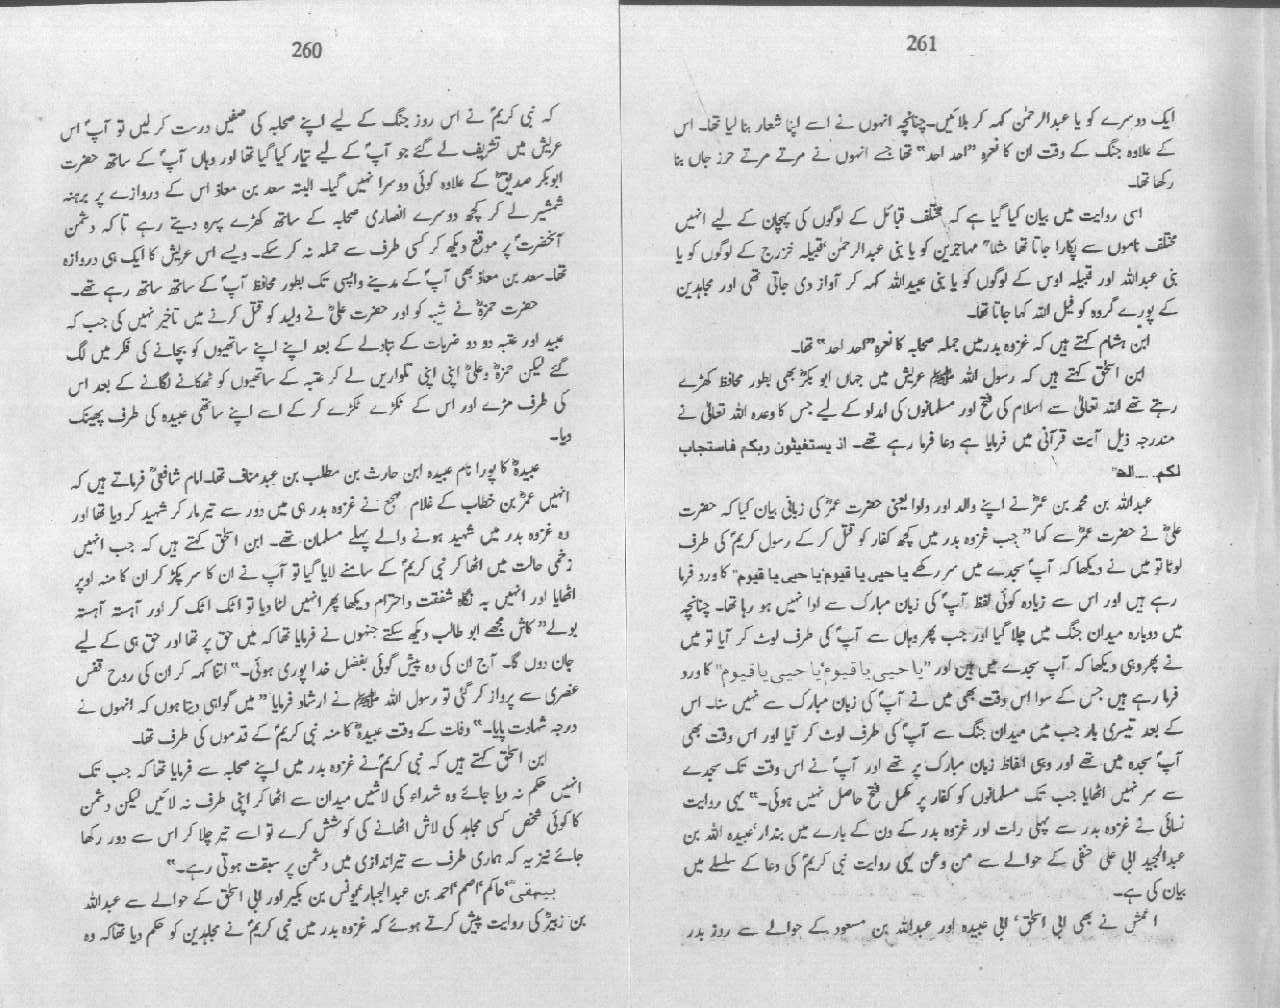 260
کہ نبی کریمؐ نے اس روز جنگ کے لیے اپنے صحابہ کی صفیں درست کر لیں تو آپؐ اس
عریش میں تشریف لے گئے جو آپؐ کے لیے تیار کیا گیا تھا اور وہاں آپؐ کے ساتھ حضرت
ابوبکر صدیقؓ کے علاوہ کوئی دوسرا نہیں گیا۔ البتہ سعد بن معاذ اس کے دروازے پر برہنہ
شمشیر لے کر کچھ دوسرے انصاری صحابہ کے ساتھ کھڑے پہرہ دیتے رہے تاکہ دشمن
آنحضرتؐ پر موقع دیکھ کر کسی طرف سے حملہ نہ کر سکے۔ ویسے اس عریش کا ایک ہی دروازہ
تھا۔ سعد بن معاذؓ بھی آپؐ کے مدینے واپسی تک بطور محافظ آپؐ کے ساتھ ساتھ رہے تھے۔
حضرت حمزہؓ نے شیبہ کو اور حضرت علیؓ نے ولید کو قتل کرنے میں تاخیر نہیں کی جب کہ
عبید اور عتبہ دو دو ضربات کے تبادلے کے بعد اپنے اپنے ساتھیوں کو بچانے کی فکر میں لگ
گئے لیکن حمزہؓ وعلیؓ اپنی اپنی تلواریں لے کر عتبہ کے ساتھیوں کو ٹھکانے لگانے کے بعد اس
کی طرف مڑے اور اس کے ٹکڑے ٹکڑے کر کے اسے اپنے ساتھی عبیدہ کی طرف پھینک
دیا۔
عبیدہؓ کا پورا نام عبیدہ ابن حارث بن مطلب بن عبد مناف تھا۔ امام شافعیؒ فرماتے ہیں کہ
انہیں عمرؓ بن خطاب کے غلام مہجع نے غزوہ بدر ہی میں دور سے تیر مار کر شہید کر دیا تھا اور
وہ غزوہ بدر میں شہید ہونے والے پہلے مسلمان تھے۔ ابن اسحٰق کہتے ہیں کہ جب انہیں
زخمی حالت میں اٹھا کر نبی کریمؐ کے سامنے لایا گیا تو آپ نے ان کا سر پکڑ کر ان کا منہ اوپر
اٹھایا اور انہیں بہ نگاہ شفقت واحترام دیکھا پھر انہیں لٹا دیا تو اٹک اٹک کر اور آہستہ آہستہ
بولے” کاش مجھے ابو طالب دیکھ سکتے جنہوں نے فرمایا تھا کہ میں حق پر تھا اور حق ہی کے لیے
جان دوں گا۔ آج ان کی وہ پیش گوئی بفضل خدا پوری ہوئی۔“ اتنا کہہ کر ان کی روح قفس
عنصری سے پرواز کر گئی تو رسول اللہ ﷺ نے ارشاد فرمایا ” میں گواہی دیتا ہوں کہ انہوں نے
درجہ شہادت پایا۔“ وفات کے وقت عبیدہؓ کا منہ نبی کریمؐ کے قدموں کی طرف تھا۔
ابن اسحٰق کہتے ہیں کہ نبی کریمؐ نے غزوہ بدر میں اپنے صحابہ سے فرمایا تھا کہ جب تک
انہیں حکم نہ دیا جائے وہ شہداء کی لاشیں میدان سے اٹھا کر اپنی طرف نہ لائیں لیکن دشمن
کا کوئی شخص کسی مجاہد کی لاش اٹھانے کی کوشش کرے تو اسے تیر چلا کر اس سے دور رکھا
جائے نیز یہ کہ ہماری طرف سے تیراندازی میں دشمن پر سبقت ہوتی رہے۔“
بیہقیؒ، حاکم، اصم، احمد بن عبدالجبار، یونس بن بکیر اور ابی اسحٰق کے حوالے سے عبداللہ
بن زبیرؓ کی روایت پیش کرتے ہوئے کہ غزوہ بدر میں نبی کریمؐ نے مجاہدین کو حکم دیا تھا کہ وہ
261
ایک دوسرے کو یا عبدالرحمٰن کہہ کر بلائیں۔ چنانچہ انہوں نے اسے اپنا شعار بنا لیا تھا۔ اس
کے علاوہ جنگ کے وقت ان کا نعرہ ”احد احد“ تھا جسے انہوں نے مرتے مرتے حرز جاں بنا
رکھا تھا۔
اسی روایت میں بیان کیا گیا ہے کہ مختلف قبائل کے لوگوں کی پہچان کے لیے انہیں
مختلف ناموں سے پکارا جاتا تھا مثلاً مہاجرین کو یا بنی عبدالرحمٰن، قبیلہ خزرج کے لوگوں کو یا
بنی عبداللہ اور قبیلہ اوس کے لوگوں کو یا بنی عبیداللہ کہہ کر آواز دی جاتی تھی اور مجاہدین
کے پورے گروہ کو خیل اللہ کہا جاتا تھا۔
ابن ہشام کہتے ہیں کہ غزوہ بدر میں جملہ صحابہ کا نعرہ ”احد احد“ تھا۔
ابن اسحٰق کہتے ہیں کہ رسول اللہ ﷺ عریش میں جہاں ابو بکرؓ بھی بطور محافظ کھڑے
رہتے تھے اللہ تعالیٰ سے اسلام کی فتح اور مسلمانوں کی امداد کے لیے جس کا وعدہ اللہ تعالیٰ نے
مندرجہ ذیل آیت قرآنی میں فرمایا ہے دعا فرما رہے تھے۔ اذ یستغیثون ربکم فاستجاب
لکم۔۔۔الخ“
عبداللہ بن محمد بن عمرؓ نے اپنے والد اور دادا یعنی حضرت عمرؓ کی زبانی بیان کیا کہ حضرت
علیؓ نے حضرت عمرؓ سے کہا ” جب غزوہ بدر میں کچھ کفار کو قتل کر کے رسول کریمؐ کی طرف
لوٹا تو میں نے دیکھا کہ آپؐ سجدے میں سر رکھے یا حیی یا قیوم، یا حیی یا قیوم“ کا ورد فرما
رہے ہیں اور اس سے زیادہ کوئی لفظ آپؐ کی زبان مبارک سے ادا نہیں ہو رہا تھا۔ چنانچہ
میں دوبارہ میدان جنگ میں چلا گیا اور جب پھر وہاں سے آپؐ کی طرف لوٹ کر آیا تو میں
نے پھر وہی دیکھا کہ آپ سجدے میں ہیں اور ”یا حیی یا قیوم، یا حیی یا قیوم“ کا ورد
فرما رہے ہیں جس کے سوا اس وقت بھی میں نے آپؐ کی زبان مبارک سے نہیں سنا۔ اس
کے بعد تیسری بار جب میں میدان جنگ سے آپؐ کی طرف لوٹ کر آیا اور اس وقت بھی
آپؐ سجدہ میں تھے اور وہی الفاظ زبان مبارک پر تھے اور آپؐ نے اس وقت تک سجدے
سے سر نہیں اٹھایا جب تک مسلمانوں کو کفار پر مکمل فتح حاصل نہیں ہوئی۔“ یہی روایت
نسائی نے غزوہ بدر سے پہلی رات اور غزوہ بدر کے دن کے بارے میں بندار، عبیدہ اللہ بن
عبدالمجید ابی علی حنفی کے حوالے سے من و عن یہی روایت نبی کریمؐ کی دعا کے سلسلے میں
بیان کی ہے۔
اعمش نے بھی ابی اسحٰق، ابی عبیدہ اور عبداللہ بن مسعود کے حوالے سے روز بدر